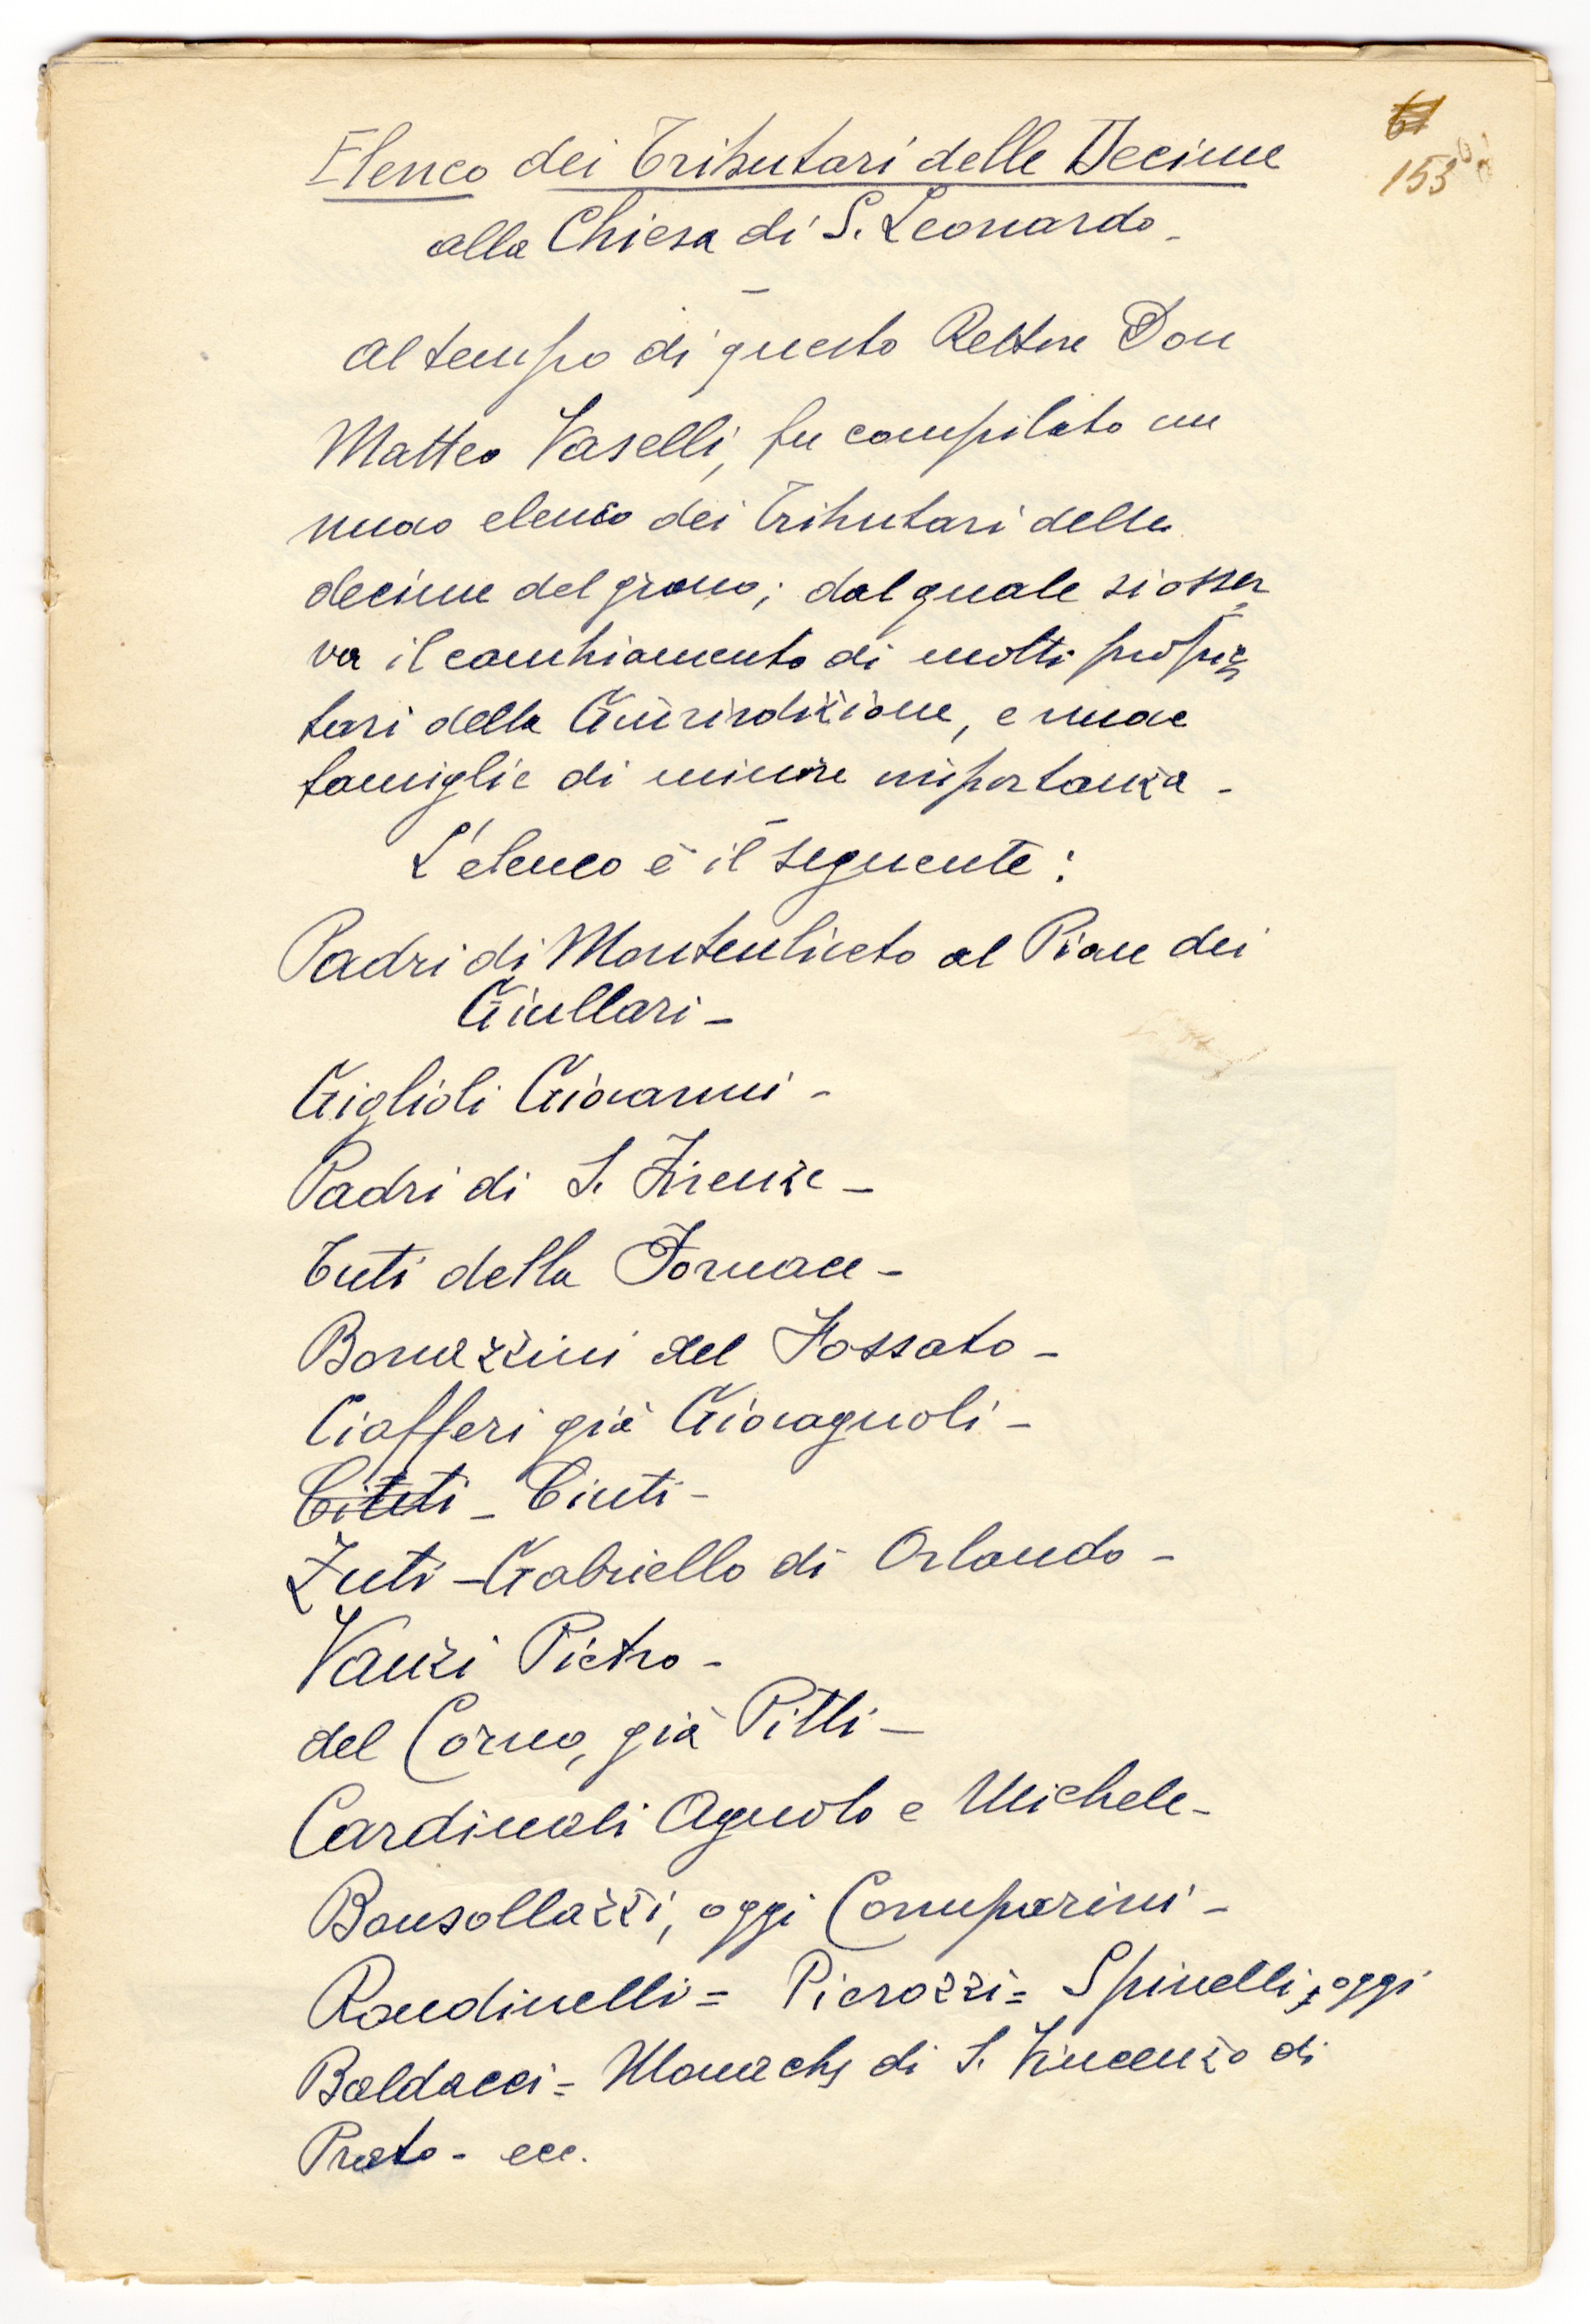 153
Elenco dei Tributari delle Decime
alla Chiesa di S. Leonardo -
Al tempo di questo Rettore Don
Matteo Vaselli, fu compilato un
nuovo elenco dei Tributari delle
decime del grano; dal quale si osser
va il cambiamento di molti proprie
tari della Giurisdizione, e nuove
famiglie di minore importanza -
L'elenco è il seguente:
Padri di Monteuliveto al Pian dei
Giullari -
Giglioli Giovanni -
Padri di S. Firenze -
Tuti della Fornace -
Bonazzini del Fossato -
Ciafferi già Giovagnoli -
Ciuti -
Zuti - Gabriello di Orlando -
Vanzi Pietro -
del Corno, già Pitti -
Cardinali Agnolo e Michele -
Bonsollazzi, oggi Comparini -
Rondinelli = Pierozzi = Spinelli, oggi
Baldacci = Monache di S. Vincenzo di
Prato - ecc.